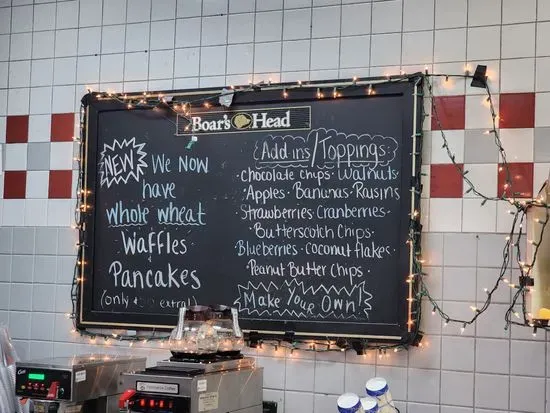 Boar's Head
NEW
We Now
have
whole wheat
Waffles
+
Pancakes
(only extra!)
Add-ins/Toppings
·Chocolate Chips·Walnuts
·Apples·Bananas·Raisins
·Strawberries·Cranberries·
·Butterscotch Chips·
Blueberries·coconut flakes·
·Peanut Butter Chips·
Make Your Own!